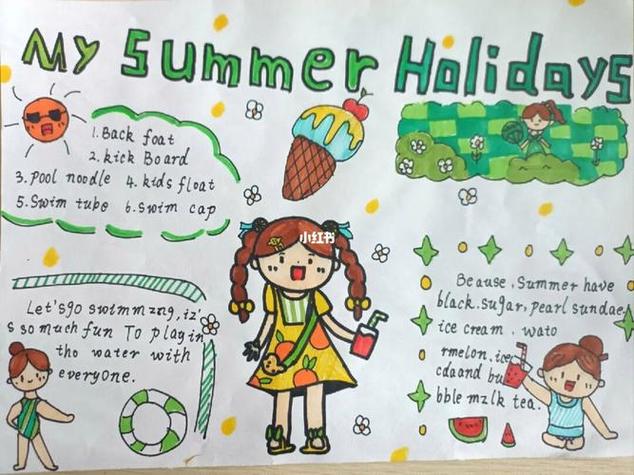 My Summer Holidays
1. Back foat
2. kick Board
3. Pool noodle 4. kids float
5. Swim tube 6. swim cap
小红书
Let's go swimmzng, iz'
s so much fun To playin
tho water with
everyone.
Beause, Summer have
black. sugar, pearl sundae,
ice cream. wato
rmelon. ice
cdaand bu
bble mzlk tea.